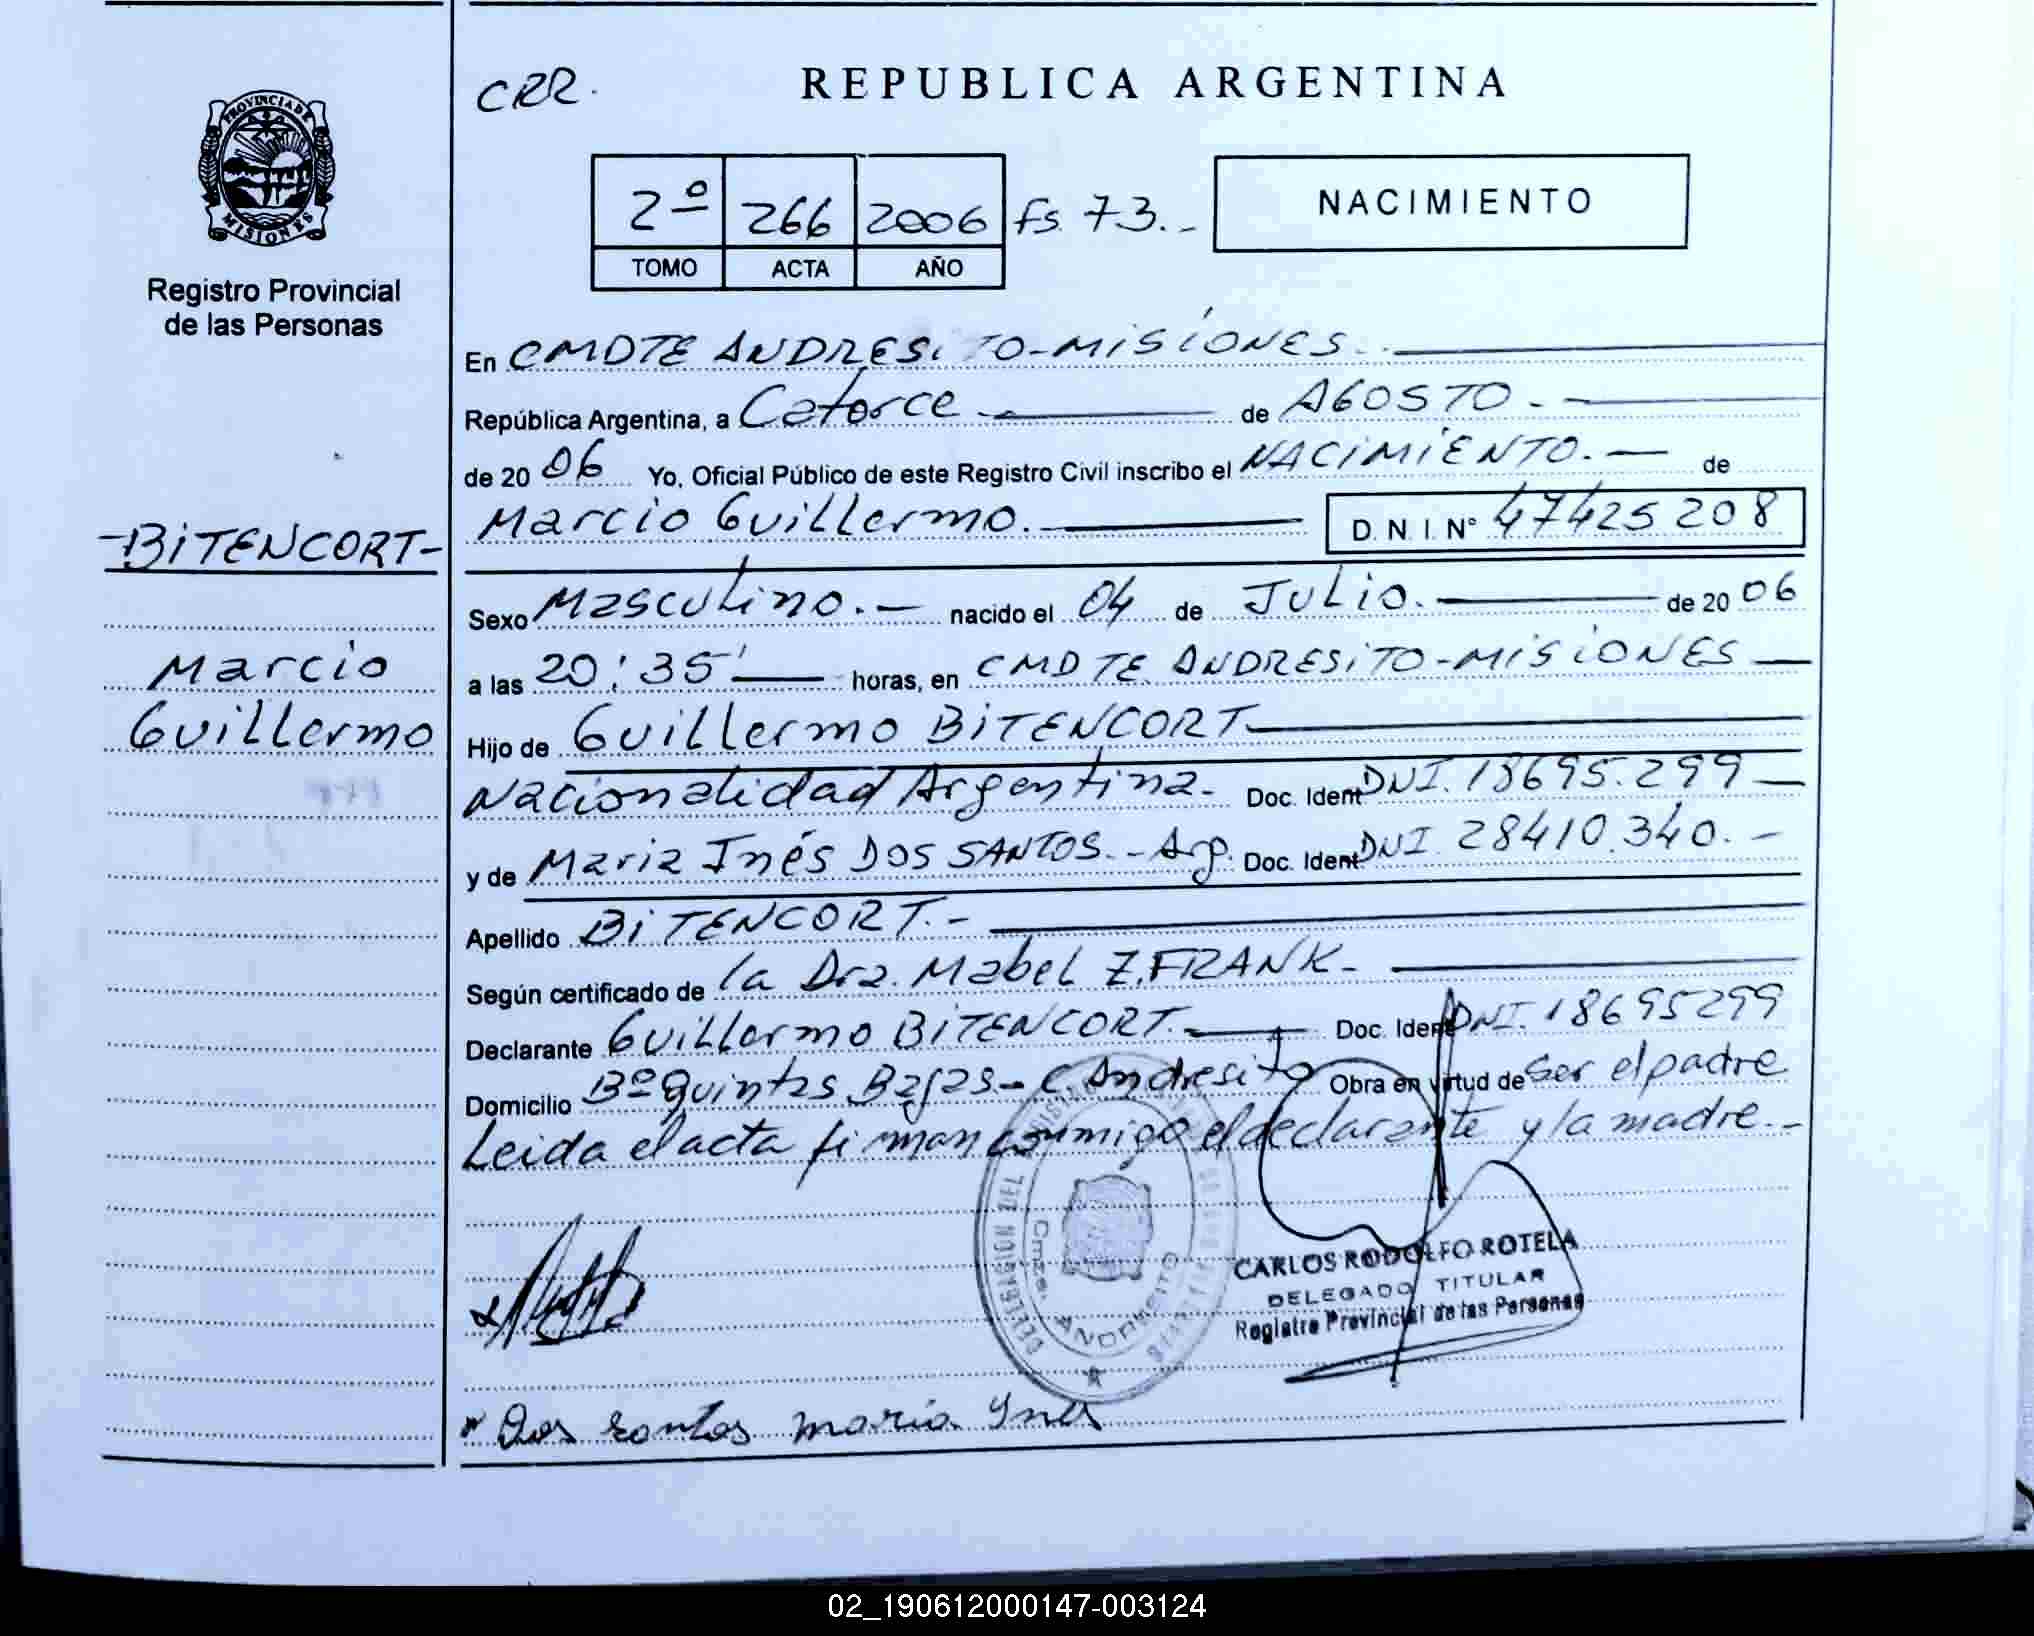 CRR.
REPUBLICA ARGENTINA
PROVINCIA DE
MISIONES
2º 266 2006 fs. 73.-
NACIMIENTO
TOMO ACTA AÑO
Registro Provincial
de las Personas
En CMDTE ANDRESITO-MISIONES.
República Argentina, a Catorce.- de AGOSTO.-
de 2006 Yo, Oficial Público de este Registro Civil inscribo el NACIMIENTO.- de
Marcio Guillermo.- D.N.I.Nº 47425208
-BITENCORT-
Marcio
Guillermo
Sexo Masculino.- nacido el 04 de JULio. de 2006
a las 20:35' horas, en CMDTE ANDRESITO-MISIONES
Hijo de Guillermo BITENCORT
Nacionalidad Argentina.- Doc. Ident DNI. 18695.299
y de Maria Inés DOS SANTOS.-Arg. Doc. Ident DNI. 28410.340.-
Apellido BITENCORT.-
Según certificado de la Dra. Mabel Z.FRANK-
Declarante Guillermo BITENCORT.- Doc. Ident DNI. 18695299
Domicilio Bº Quintas Bajas-C. Andresito Obra en virtud de Ser el padre
Leida el acta firman conmigo el declarante y la madre.-
DELEGACION DEL
ANDRESITO
CARLOS RODOLFO ROTELA
DELEGADO TITULAR
Registro Provincial de las Personas
Dos santos maria Ines
02_190612000147-003124